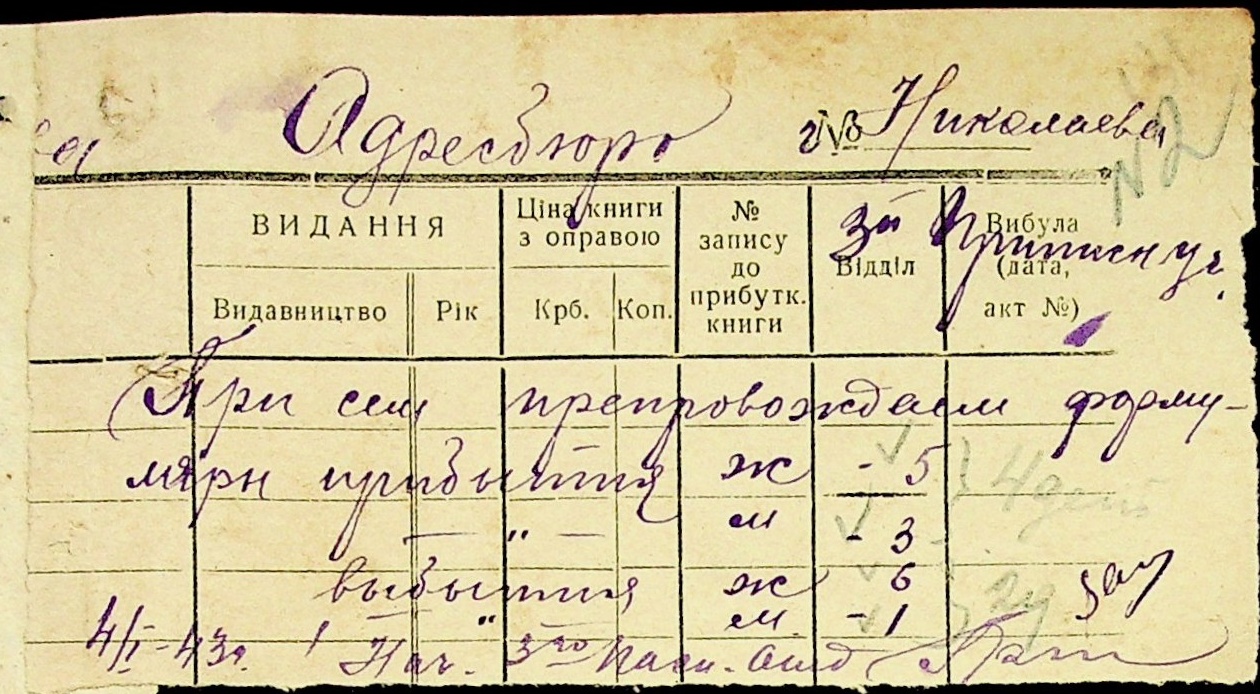 Адресбюро г. Николаева
N2
ВИДАННЯ
Ціна книги з оправою
№ запису до прибутк. книги
3й
Відділ
Вибула (дата, акт №)
Видавництво
Рік
Крб.
Коп.
При сем препровождаем форму-
ляры прибытия ж - 5
— " — м - 3
выбытия ж 6
— " м. - 1
4/I - 43г. Нач. 3го